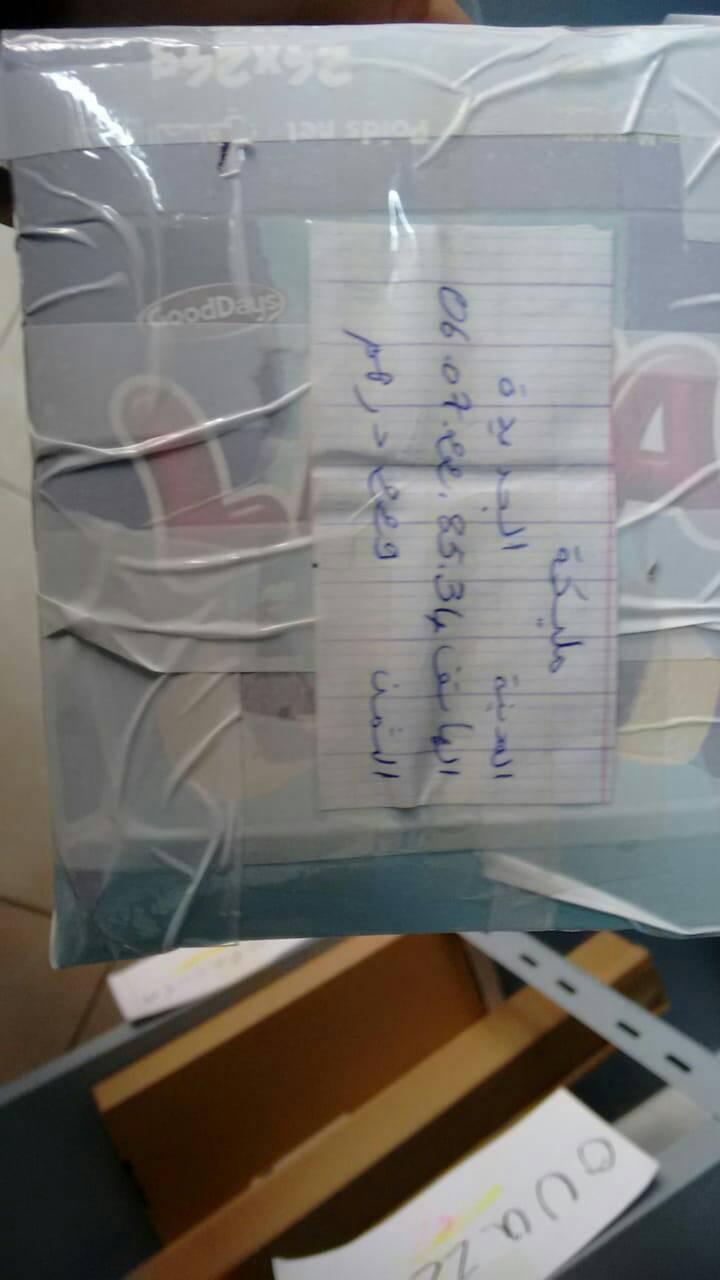 26x24g
Poids net
GoodDays
مليكة
المدينة الجديدة
الهاتف 06.07.22.85.34
الثمن 229 درهم